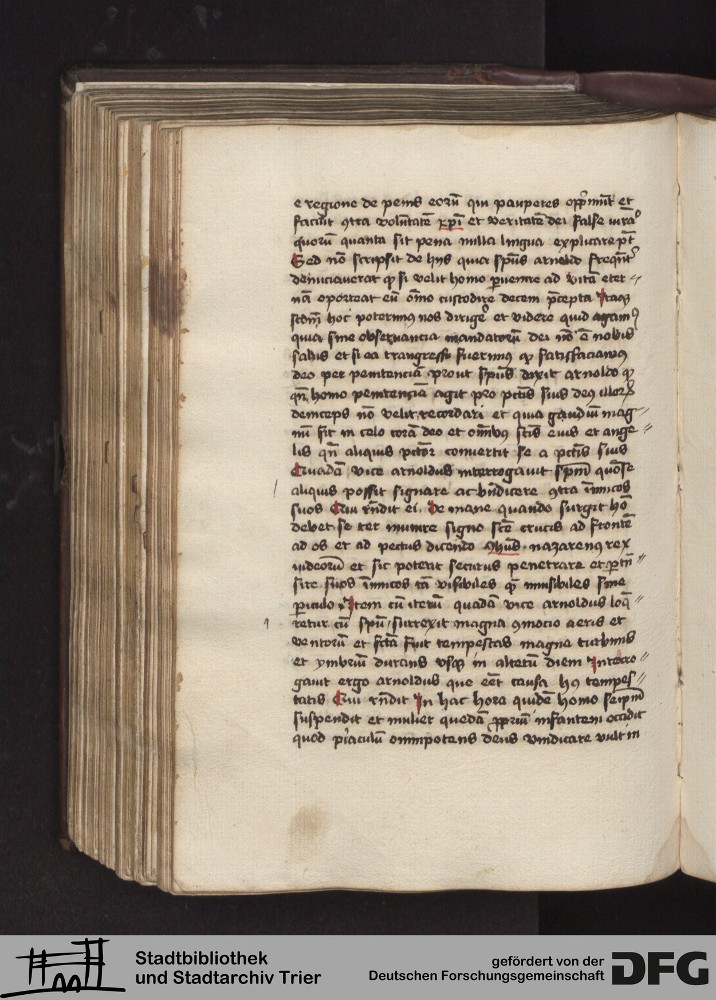 e regione de penis eorū qui pauperes opp̄mūt et
faciūt ꝯtra volūtatē xp̄i et veritatē dei false iurāt
quorū quanta sit pena nulla lingua explicare pt̄
Sed nō scripsit de hijs quia sp̄us arnoldo freqn̄t
denūciauerat ꝙ si velit homo ꝑuenire ad vitā eter
nā oporteat eū om̄o custodire decem p̄cepta Itaqꝫ
scdm̄ hoc poterimꝰ nos dirigeꝰ et videre quid agamꝰ
quia sine obseruancia mandatorū dei nō ē nobis
salus et si ea transgressi fuerimꝰ ꝙ satisfaciamꝰ
deo per penitenciā prout sp̄us dixit arnoldo ꝙ
qn̄ homo penitenciā agit pro pctīs suis deꝰ illorꝝ
deinceps nō velit recordari et quia gaudiū mag
nū fit in celo corā deo et om̄ibꝰ sctīs eius et ange
lis qn̄ aliquis pctōr conuertit se a pctīs suis
Quadā vice arnoldus interrogauit sp̄m quōse
aliquis possit signare ac bn̄dicere ꝯtra īimicos
suos Qui rn̄dit ei De mane quando surgit hō
debet se ter munire signo sctē crucis ad frontē
ad os et ad pectus dicendo Ihūs nazarenꝰ rex
iudeorū et sic poterit securus penetrare et ptn̄
sire suos īimicos tā visibiles ꝙ̄ inuisibiles sine
ꝑiculo Item cū iterū quadā vice arnoldus loq̄
retur cū sp̄u surrexit magna ꝯmocio aeris et
ventorū et fctā fuit tempestas magna turbinis
et ymbriū durans vsqꝫ in alterū diem Interro
gauit ergo arnoldus que eēt causa hꝰ tempes
tatis Qui rn̄dit In hac hora quidē homo seip̄m
suspendit et mulier quedā ꝓpriū infantem occidit
quod piaculū omnipotens deus vindicare vult in
Stadtbibliothek
und Stadtarchiv Trier
gefördert von der
Deutschen Forschungsgemeinschaft
DFG